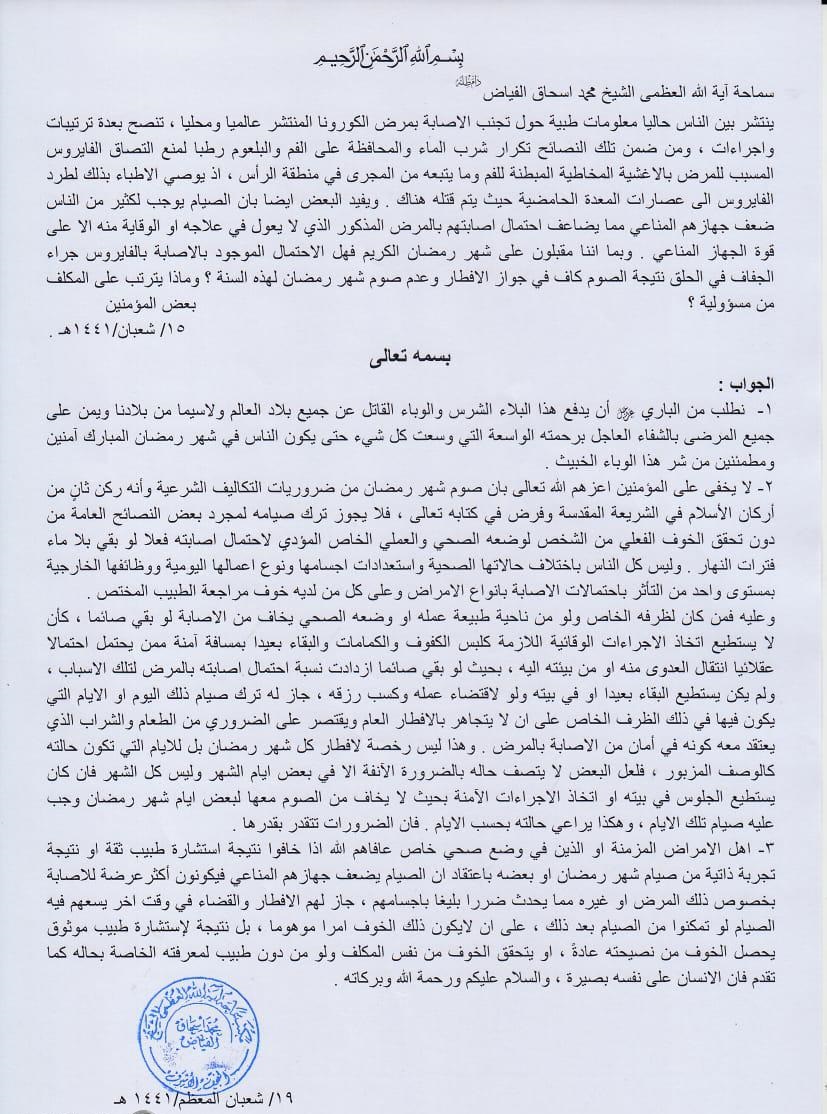 بِسْمِ اللهِ الرَّحْمٰنِ الرَّحِيمِ
سماحة آية الله العظمى الشيخ محمد اسحاق الفياض دام ظله
ينتشر بين الناس حاليا معلومات طبية حول تجنب الاصابة بمرض الكورونا المنتشر عالميا ومحليا ، تنصح بعدة ترتيبات
واجراءات ، ومن ضمن تلك النصائح تكرار شرب الماء والمحافظة على الفم والبلعوم رطبا لمنع التصاق الفايروس
المسبب للمرض بالاغشية المخاطية المبطنة للفم وما يتبعه من المجرى في منطقة الرأس ، اذ يوصي الاطباء بذلك لطرد
الفايروس الى عصارات المعدة الحامضية حيث يتم قتله هناك . ويفيد البعض ايضا بان الصيام يوجب لكثير من الناس
ضعف جهازهم المناعي مما يضاعف احتمال اصابتهم بالمرض المذكور الذي لا يعول في علاجه او الوقاية منه الا على
قوة الجهاز المناعي . وبما اننا مقبلون على شهر رمضان الكريم فهل الاحتمال الموجود بالاصابة بالفايروس جراء
الجفاف في الحلق نتيجة الصوم كاف في جواز الافطار وعدم صوم شهر رمضان لهذه السنة ؟ وماذا يترتب على المكلف
من مسؤولية ؟ بعض المؤمنين
١٥/ شعبان/١٤٤١هـ .
بسمه تعالى
الجواب :
١- نطلب من الباري عز وجل أن يدفع هذا البلاء الشرس والوباء القاتل عن جميع بلاد العالم ولاسيما من بلادنا ويمن على
جميع المرضى بالشفاء العاجل برحمته الواسعة التي وسعت كل شيء حتى يكون الناس في شهر رمضان المبارك آمنين
ومطمئنين من شر هذا الوباء الخبيث .
٢- لا يخفى على المؤمنين اعزهم الله تعالى بان صوم شهر رمضان من ضروريات التكاليف الشرعية وأنه ركن ثانٍ من
أركان الأسلام في الشريعة المقدسة وفرض في كتابه تعالى ، فلا يجوز ترك صيامه لمجرد بعض النصائح العامة من
دون تحقق الخوف الفعلي من الشخص لوضعه الصحي والعملي الخاص المؤدي لاحتمال اصابته فعلا لو بقي بلا ماء
فترات النهار . وليس كل الناس باختلاف حالاتها الصحية واستعدادات اجسامها ونوع اعمالها اليومية ووظائفها الخارجية
بمستوى واحد من التأثر باحتمالات الاصابة بانواع الامراض وعلى كل من لديه خوف مراجعة الطبيب المختص .
وعليه فمن كان لظرفه الخاص ولو من ناحية طبيعة عمله او وضعه الصحي يخاف من الاصابة لو بقي صائما ، كأن
لا يستطيع اتخاذ الاجراءات الوقائية اللازمة كلبس الكفوف والكمامات والبقاء بعيدا بمسافة آمنة ممن يحتمل احتمالا
عقلائيا انتقال العدوى منه او من بيئته اليه ، بحيث لو بقي صائما ازدادت نسبة احتمال اصابته بالمرض لتلك الاسباب ،
ولم يكن يستطيع البقاء بعيدا او في بيته ولو لاقتضاء عمله وكسب رزقه ، جاز له ترك صيام ذلك اليوم او الايام التي
يكون فيها في ذلك الظرف الخاص على ان لا يتجاهر بالافطار العام ويقتصر على الضروري من الطعام والشراب الذي
يعتقد معه كونه في أمان من الاصابة بالمرض . وهذا ليس رخصة لافطار كل شهر رمضان بل للايام التي تكون حالته
كالوصف المزبور ، فلعل البعض لا يتصف حاله بالضرورة الآنفة الا في بعض ايام الشهر وليس كل الشهر فان كان
يستطيع الجلوس في بيته او اتخاذ الاجراءات الآمنة بحيث لا يخاف من الصوم معها لبعض ايام شهر رمضان وجب
عليه صيام تلك الايام ، وهكذا يراعي حالته بحسب الايام . فان الضرورات تتقدر بقدرها .
٣- اهل الامراض المزمنة او الذين في وضع صحي خاص عافاهم الله اذا خافوا نتيجة استشارة طبيب ثقة او نتيجة
تجربة ذاتية من صيام شهر رمضان او بعضه باعتقاد ان الصيام يضعف جهازهم المناعي فيكونون أكثرعرضة للاصابة
بخصوص ذلك المرض او غيره مما يحدث ضررا بليغا باجسامهم ، جاز لهم الافطار والقضاء في وقت اخر يسعهم فيه
الصيام لو تمكنوا من الصيام بعد ذلك ، على ان لايكون ذلك الخوف امرا موهوما ، بل نتيجة لإستشارة طبيب موثوق
يحصل الخوف من نصيحته عادةً ، او يتحقق الخوف من نفس المكلف ولو من دون طبيب لمعرفته الخاصة بحاله كما
تقدم فان الانسان على نفسه بصيرة ، والسلام عليكم ورحمة الله وبركاته .
محمد إسحاق
الفياض
النجف الأشرف
١٩/ شعبان المعظم/١٤٤١ هـ